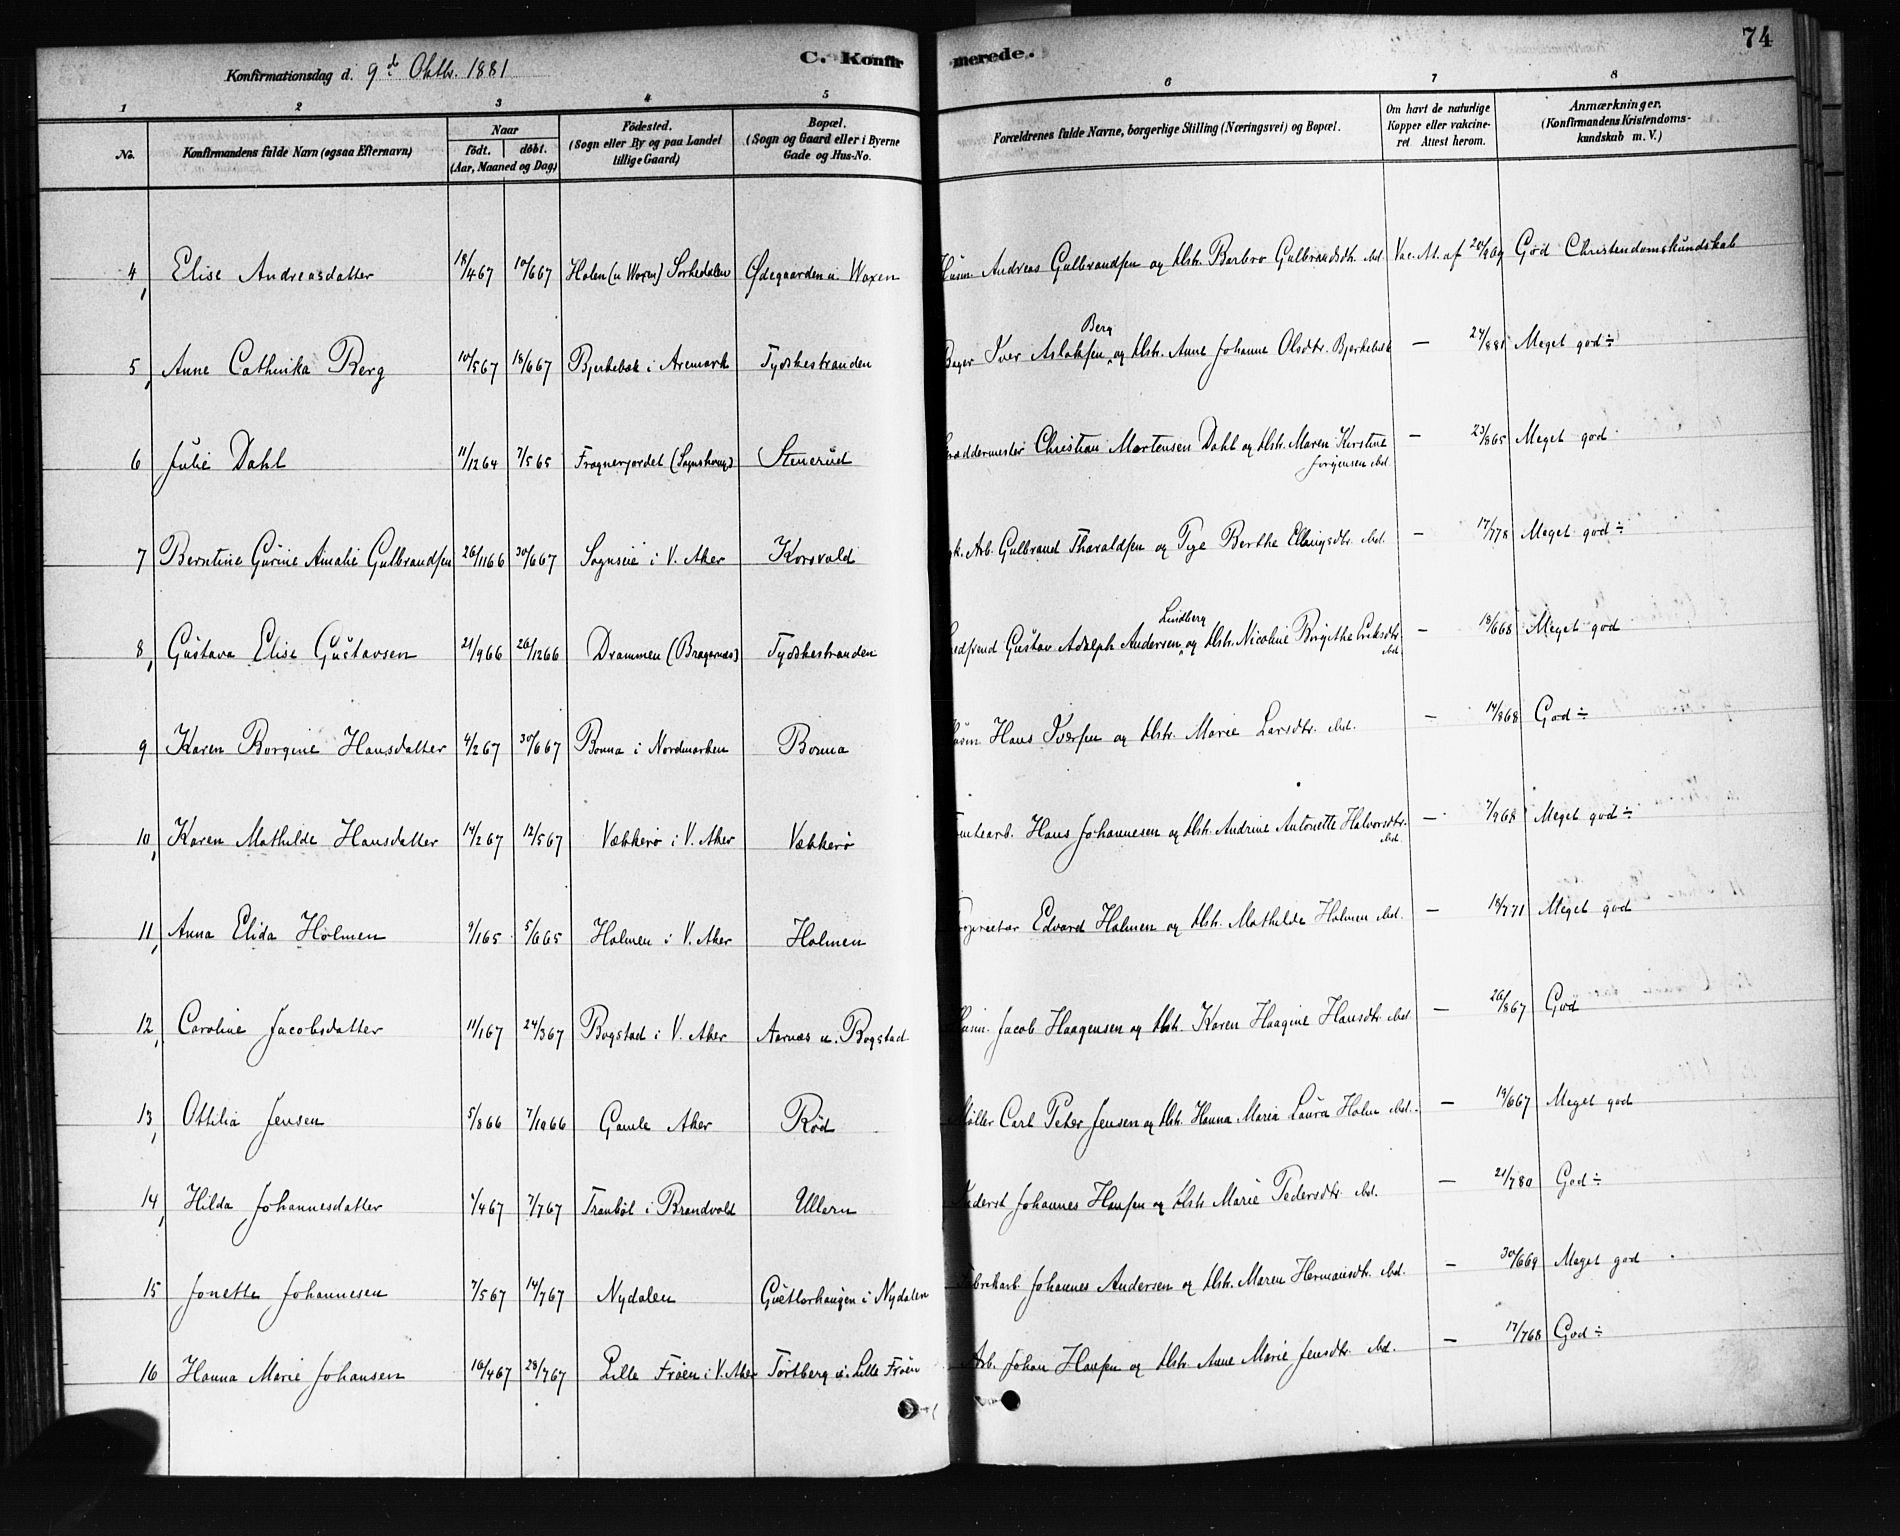 74
Konfirmationsdag d. 9de Oktbr. 1881
C. Konfirmerede.
1 2 3 4 5 6 7 8
No.
Konfirmandens fulde Navn (ogsaa Efternavn)
Naar født. døbt. (Aar, Maaned og Dag)
Fødested. (Sogn eller By og paa Landet tillige Gaard)
Bopæl. (Sogn og Gaard eller i Byerne Gade og Hus-No.
Forældrenes fulde Navne, borgerlige Stilling (Næringsvei) og Bopæl.
Om havt de naturlige Kopper eller vakcineret. Attest herom.
Anmærkninger. (Konfirmandens Kristendomskundskab m. V.)
4, Elise Andreasdatter 18/4 67 10/6 67 Holen (u Woxen) Sørkedalen Ødegaarden u. Woxen Husm. Andreas Gulbrandsen og Hstr. Barbro Gulbrandsdtr. ibd. Vac. At. af 20/9 69 God Christendomskundskab
5, Anne Cathinka Berg 10/5 67 18/6 67 Bjerkebæk i Aremark Tydskestranden Bager Iver Aslaksen Berg og Hstr. Anne Johanne Olsdtr. Bjerkebæk — 24/8 81 Meget god ÷
6 Julie Dahl 11/12 64 7/5 65 Frognerjordet (Sognshaug) Stenerud Skræddermester Christian Mortensen Dahl og Hstr. Maren Kirstine Jørgensen ibd. — 23/8 65 Meget god
7 Berntine Gurine Amalie Gulbrandsen 26/11 66 30/6 67 Sognseie i V. Aker Korsvold Arb. Gulbrand Tharaldsen og Pige Berthe Ellingsdtr. ibd. — 17/7 78 Meget god ÷
8, Gustava Elise Gustavsen 21/9 66 26/12 66 Drammen (Bragernæs) Tydskestranden Gustav Adolph Andersen Lindberg og Hstr. Nicoline Birgithe Eriksdtr. ibd. — 18/6 68 Meget god
9 Karen Borgine Hansdatter 4/2 67 30/6 67 Bonna i Nordmarken Bonna Husm Hans Iversen og Hstr. Marie Larsdtr. ibd. — 14/8 68 God ÷
10, Karen Mathilde Hansdatter 14/2 67 12/5 67 Vækkerø i V. Aker Vækkerø Tomtearb. Hans Johannesen og Hstr. Andrine Antonette Halvorsdtr. ibd. — 7/9 68 Meget god ÷
11, Anna Elida Holmen 9/1 65 5/6 65 Holmen i V. Aker Holmen Proprietær Edvard Holmen og Hstr. Mathilde Holmen ibd. — 18/7 71 Meget god
12, Caroline Jacobsdatter 11/1 67 24/3 67 Bogstad i V. Aker Aarnæs u. Bogstad Husm. Jacob Haagensen og Hstr. Karen Haagine Hansdtr. ibd. — 26/8 67 God
13, Ottilia Jensen 5/8 66 7/10 66 Gamle Aker Rød Møller Carl Peter Jensen og Hstr. Hanna Maria Laura Holm ibd. — 19/6 67 Meget god
14, Hilda Johannesdatter 1/4 67 7/7 67 Trønbøl i Brandvold Ullern Inderst Johannes Hansen og Hstr Marie Pedersdtr. ibd. — 21/7 80 God ÷
15 Jonette Johannesen 7/5 67 14/7 67 Nydalen Gutlerhaugen i Nydalen Fabrikarb Johannes Andersen og Hstr. Maren Hermansdtr. ibd. — 30/6 69 Meget god
16 Hanna Marie Johansen 16/4 67 28/7 67 Lille Frøen i V. Aker Tørtberg u. Lille Frøen Arb. Johan Hansen og Hstr. Anne Marie Jensdtr. ibd. — 17/7 68 God ÷